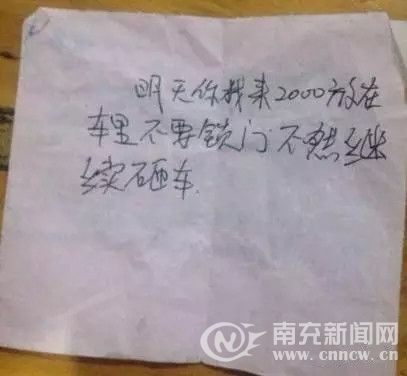 明天你找来2000放在
车里不要锁门不然继
续砸车.
南充新闻网
www.cnncw.cn